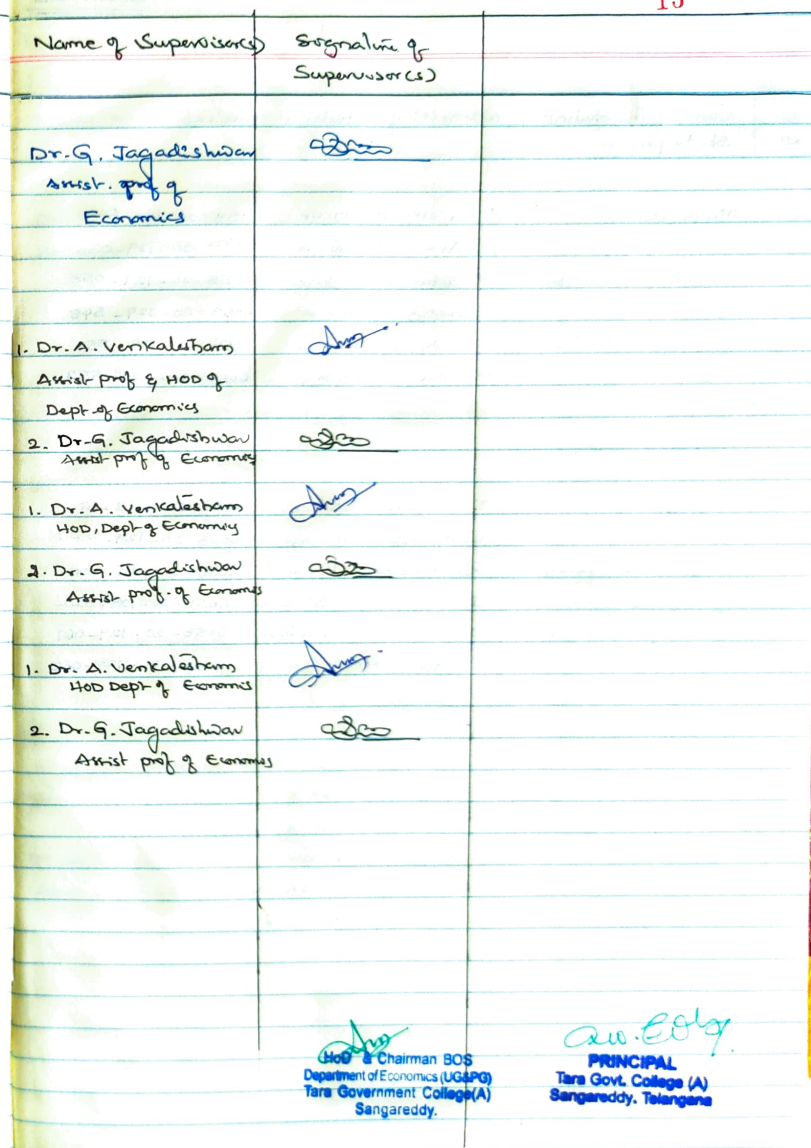 15
Name of Supervisor(s) Sognature of
Supervisor(s)
Dr. G. Jagadishwar
Assist. prof of
Economics
1. Dr. A. Venkatesham
Assist prof & HOD of
Dept. of Economics
2. Dr. G. Jagadishwar
Assist prof of Economics
1. Dr. A. Venkatesham
HOD, Dept of Economics
2. Dr. G. Jagadishwar
Assist prof. of Economics
1. Dr. A. Venkatesham
HOD Dept of Economis
2. Dr. G. Jagadishwar
Assist prof of Economics
HoD & Chairman BOS
Department of Economics (UG&PG)
Tara Government College(A)
Sangareddy.
PRINCIPAL
Tara Govt. College (A)
Sangareddy. Telangana